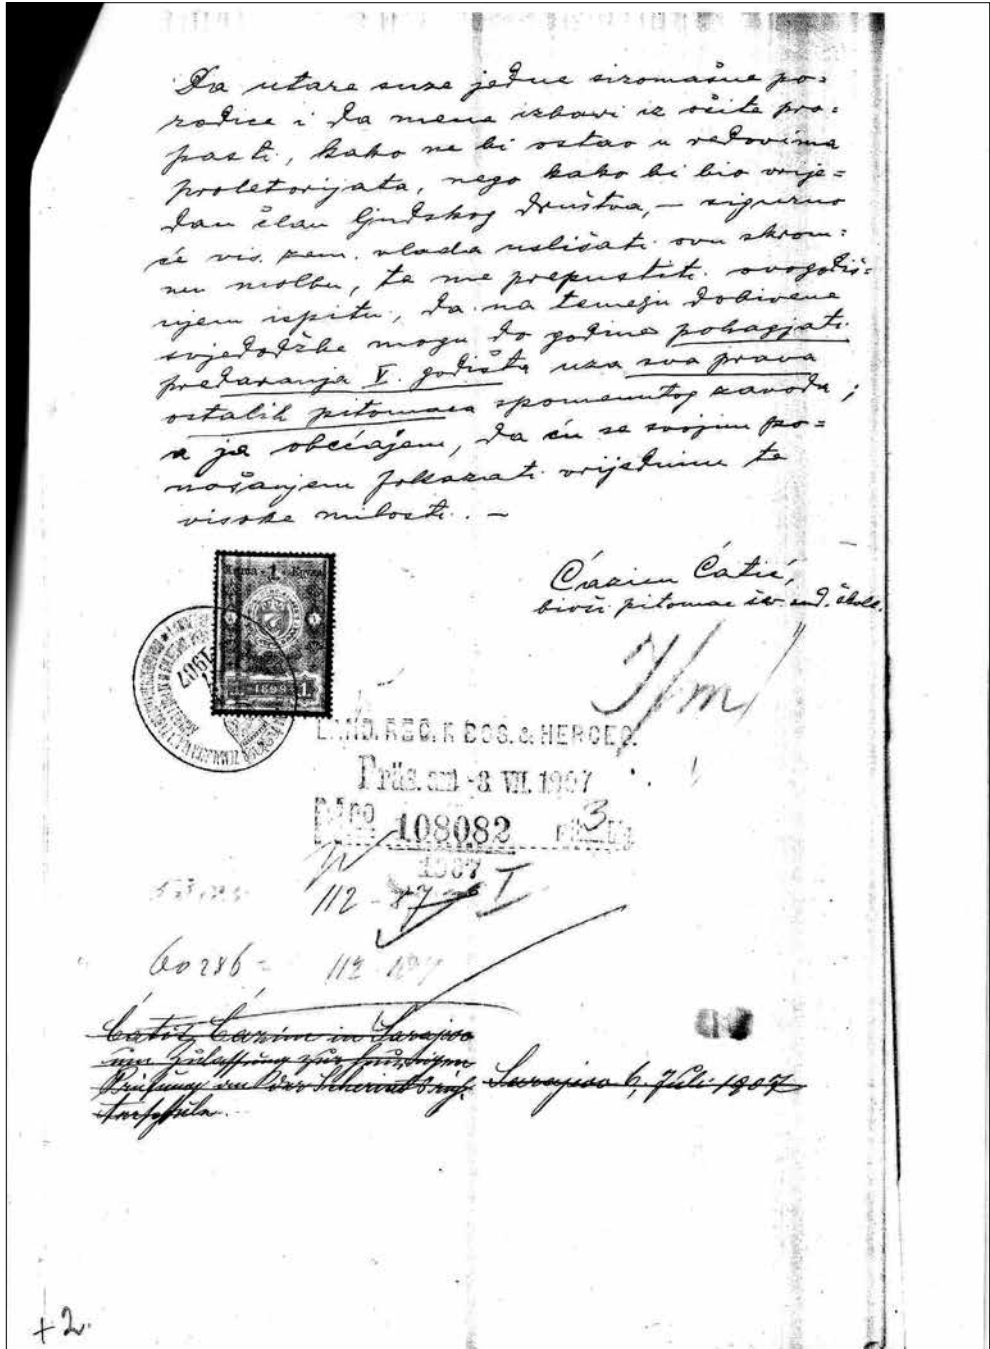 Da utare suze jedne siromašne po=
rodice i da mene izbavi iz očite pro=
pasti, kako ne bi ostao u redovima
proletorijata, nego kako bi bio vrije=
dan član ljudskog društva, — sigurno
će vis. zem. vlada uslišati ovu skrom=
nu molbu, te me prepustiti ovogodiš=
njem ispitu, da na temelju dobivene
svjedodžbe mogu do godine pohagjati
predavanja V. godišta uza sva prava
ostalih pitomaca spomenutog zavoda;
a ja obećajem, da ću se svojim po=
našanjem pokazati vrijednim te
visoke milosti. —
Ćazim Ćatić,
bivši pitomac šer. sud. škole.
1907
1
LAND. REG. F. BOS. & HERCEG.
Präs. am -3 VII. 1907
108082 3
1907 I
112 - 87
60286 =
112 187
Ćatić Ćazim in Sarajevo
um Zulassung zur heurigen
Prüfung an der Scheriatsrich
terschule.
Sarajevo 6, Juli 1907
+2.